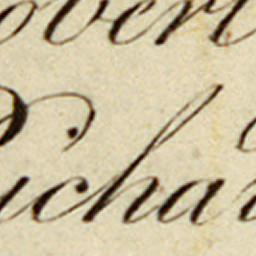 obert
Richar